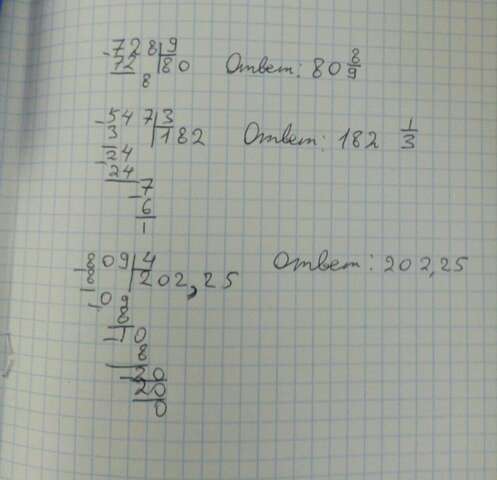 -728 9
72 80 Ответ: 80 8/9
8
-547 3
3 182 Ответ: 182 1/3
-24
24
-7
6
1
-809 4 Ответ: 202,25
8 202,25
-09
8
-10
8
-20
20
0